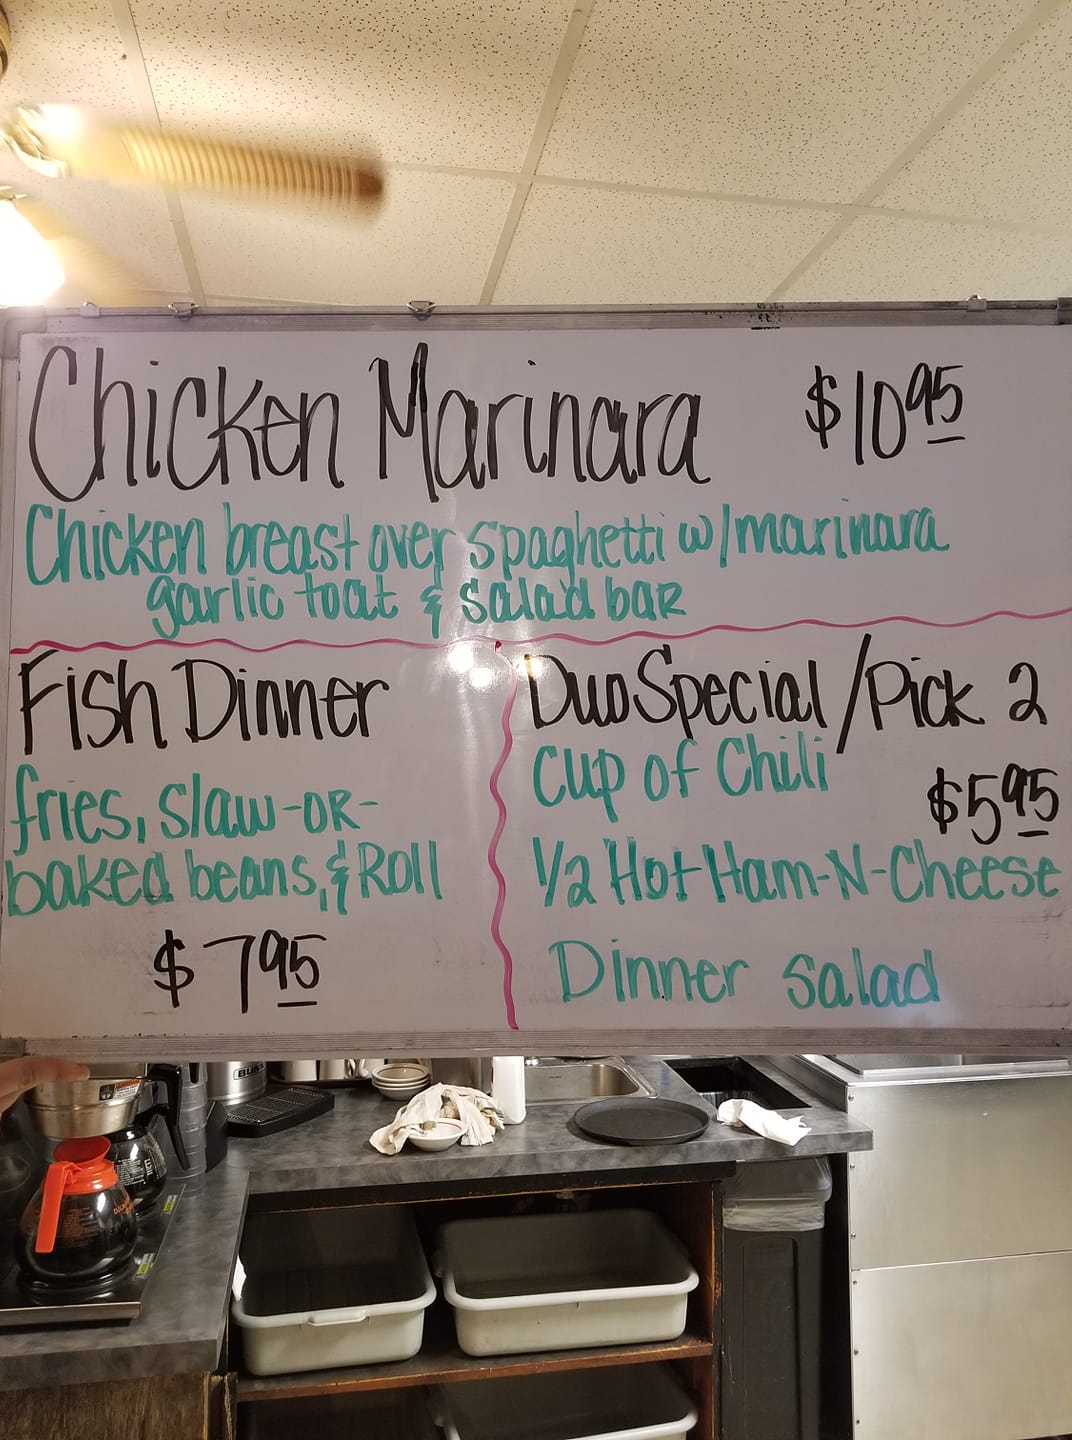 Chicken Marinara $10 95
Chicken breast over spaghetti w/marinara
garlic toat & salad bar
Fish Dinner
fries, slaw -OR-
baked beans, & Roll
$7 95
Duo Special /Pick 2
Cup of Chili
$5 95
1/2 Hot Ham-N-Cheese
Dinner Salad
BUNN